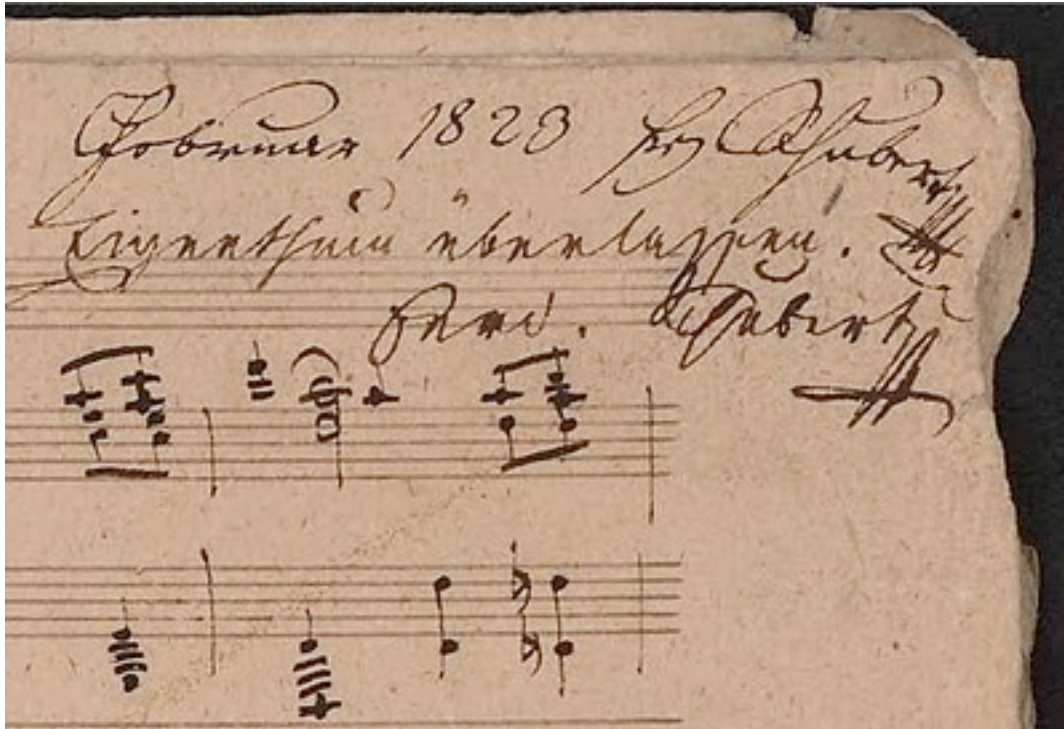 Februar 1823 Frz Schubert
Eigenthum überlassen.
Ferd. Schubert